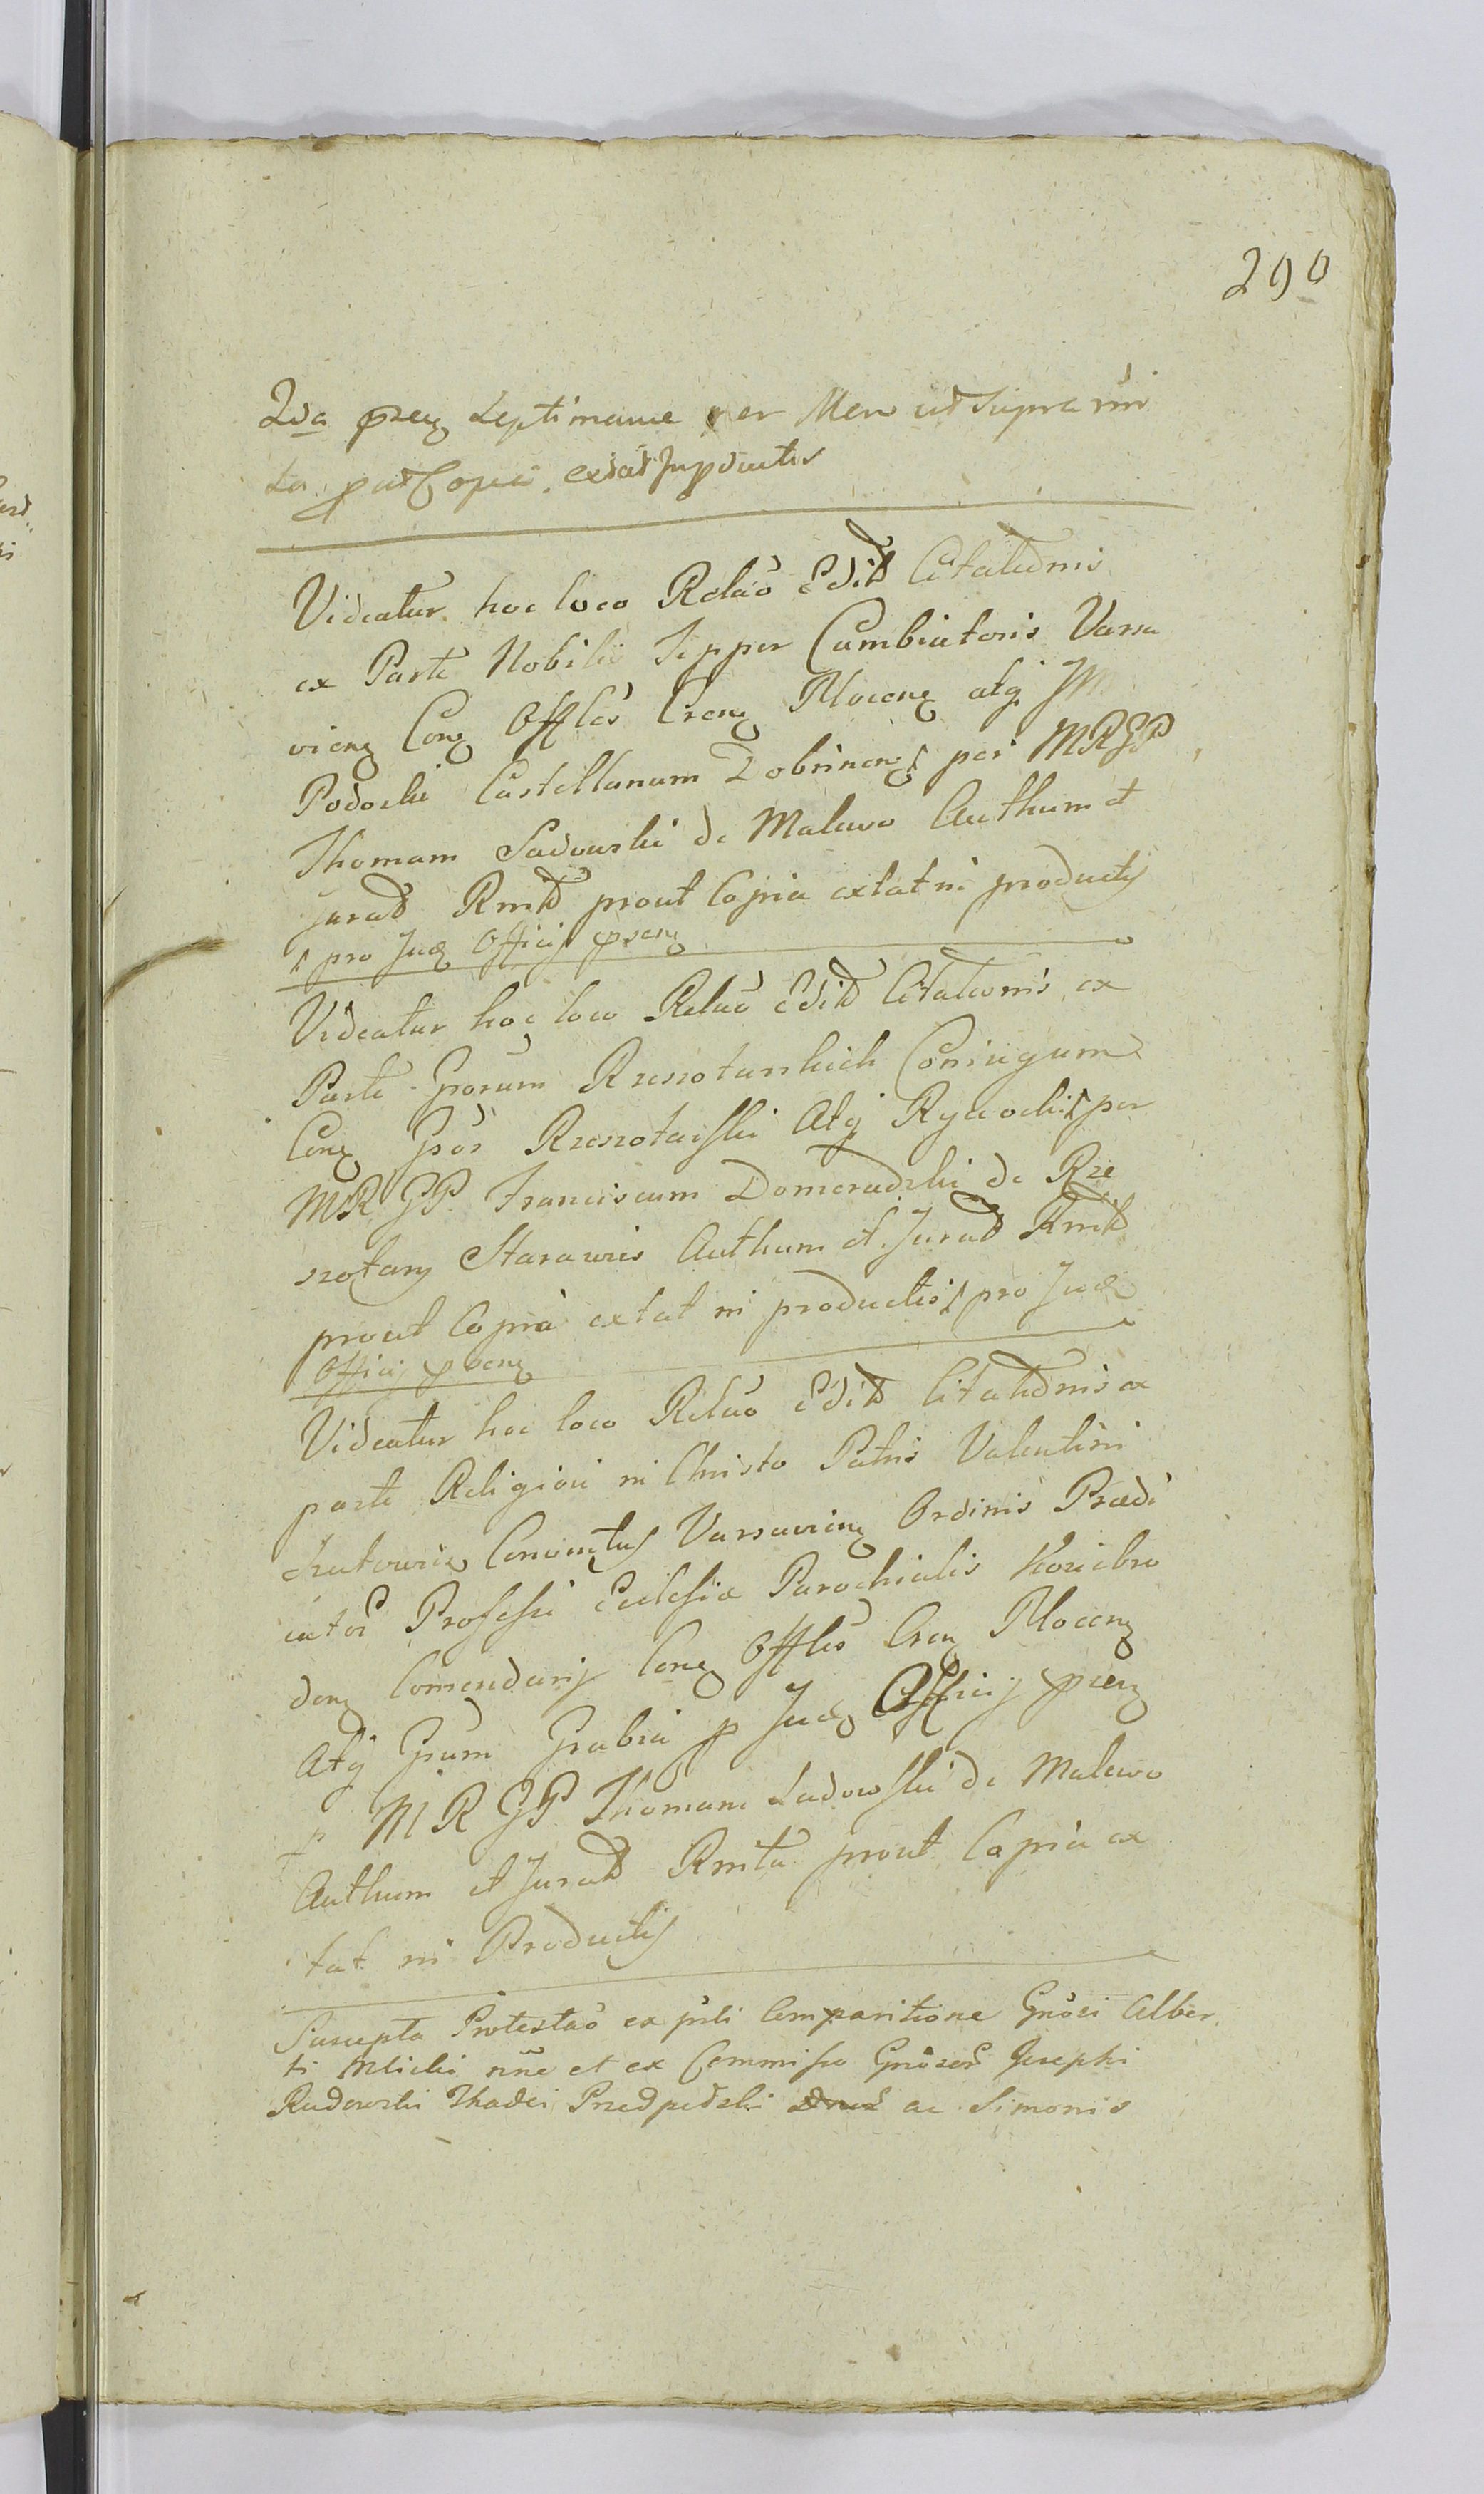 290
2da prſen Septimanae per Men ut Supra rñi
ta put Copia extat Inpductis
Videatur hoc loco Relaõ Edit Citationis
ex Parte Nobilis Tepper Cambiatoris Varsa
vien Con Offles Cren Plocens alij JM
Podoski Castellanum Dobrinens per MRGP
Thomam Sadowski de Malewo Authum et
Jurat Rmit prout Copia extat in productis
pro Jud Officij prsen
Videatur hoc loco Relaõ Edit Citationis ex
Parte Grorum Rzeszotarskich Coniugum
Con Gros Rzeszotarski Atq Rywocki per
MRGP Franciscum Domeradzki de Rze
szotary Starawies Authum et Jurat Rmit
prout Copia extat in productis pro Jud
Officij prsen
Videatur hoc loco Relaõ Edit Citationis ex
parte Religiosi in Christo Patris Valentini
Conventus Varsavien Ordinis Prædi
cator Professi Ecclesiæ Parochialis Koziebro
den Comendarij Con Offles Cren Plocens
Atq Grum Grabia p Jud Officij prsen
p MRGP Thomam Sadowski de Malewo
Authum et Jurat Rmita prout Copia ex
tat in Productis
Suscepta Protestaõ ex psli Comparitione Gnosi Alber
ti Mlicki nñe et ex Commisso Gnosor Josephi
Rudowski Thadei Przedpelski ac Simonis